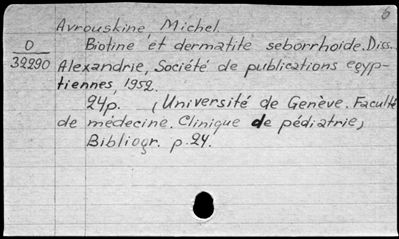 6
Avrouskine, Michel.
D
32290
Biotine et dermatite seborrhoide. Diss.
Alexandrie, Société de publications egyp-
tiennes, 1952.
24p. (Université de Genève. Faculté
de médecine. Clinique de pédiatrie)
Bibliogr. p.24.